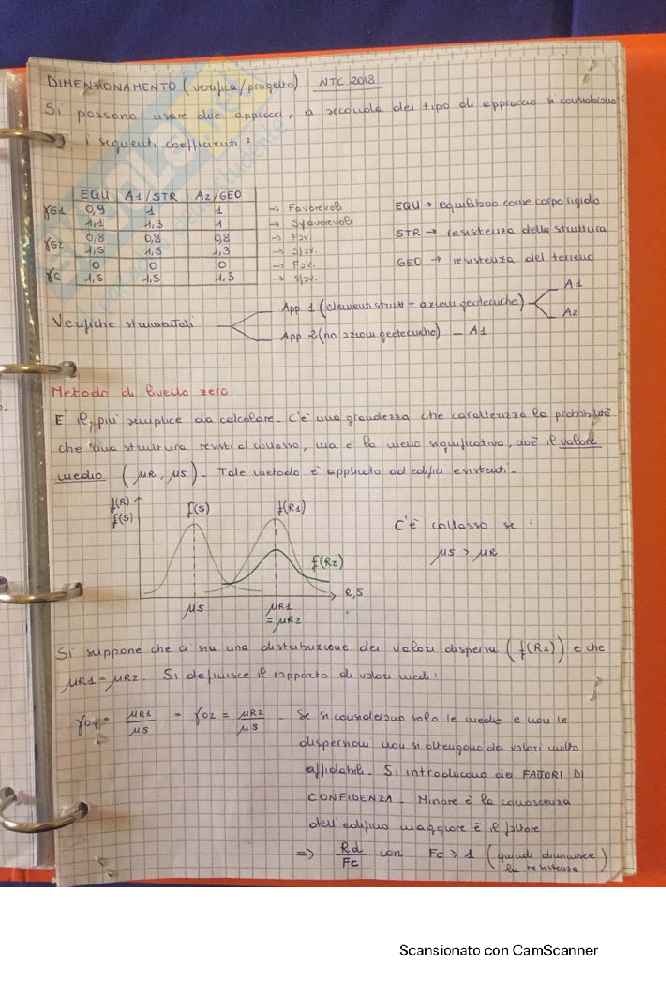 DIMENSIONAMENTO (verifica/progetto) NTC 2018
Si possono usare due approcci, a seconda del tipo di approccio si considerano
i seguenti coefficienti:
EQU A1/STR A2/GEO
γG1 0,9 1 1 → Favorevoli
1,1 1,3 1 → Sfavorevoli
γG2 0,8 0,8 0,8 → Fav.
1,5 1,5 1,3 → Sfav.
γQ 0 0 0 → Fav.
1,5 1,5 1,3 → Sfav.
EQU → equilibrio come corpo rigido
STR → resistenza della struttura
GEO → resistenza del terreno
Verifiche strutturali
App 1 (elementi strutt - azioni geotecniche) A1
A2
App 2 (no azioni geotecniche) - A1
Metodo di livello zero
È il più semplice da calcolare. C'è una grandezza che caratterizza la probabilità
che una struttura resista al collasso, ma è la meno significativa, cioè il valore
medio (μR, μS). Tale metodo è applicato ad edifici esistenti.
f(R)
f(S)
f(S) f(R1)
f(R2)
R,S
μS μR1
= μR2
C'è collasso se:
μS > μR
Si suppone che ci sia una distribuzione dei valori dispersa (f(R2)) e che
μR1 = μR2. Si definisce il rapporto di valori medi:
γ01 = μR1/μS = γ02 = μR2/μS. Se si considerano solo le medie e non le
dispersioni non si ottengono dei valori molto
affidabili. Si introducono dei FATTORI DI
CONFIDENZA. Minore è la conoscenza
dell'edificio maggiore è il fattore
=> Rd/Fc con Fc > 1 (quindi diminuisce
la resistenza
Scansionato con CamScanner